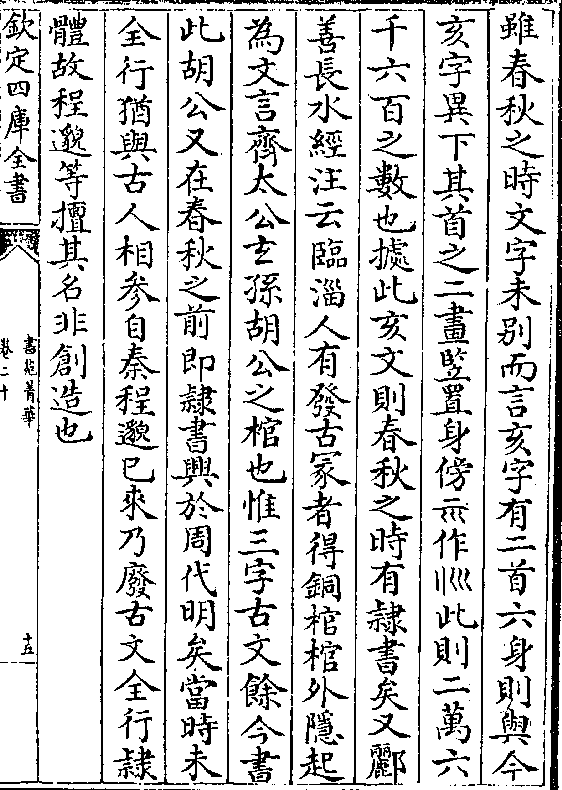 雖春秋之時文字未别而言亥字有二首六身則與今
亥字異下其首之二畫竪置身傍亦作此則二萬六
千六百之數也據此亥文則春秋之時有隸書矣又酈
善長水經注云臨淄人有發古冢者得銅棺棺外隱起
為文言齊太公玄孫胡公之棺也惟三字古文餘今書
此胡公又在春秋之前即隸書興於周代明矣當時未
全行猶與古人相參自秦程邈已來乃廢古文全行隸
體故程邈等擅其名非創造也
欽定四庫全書
書苑菁華
卷二十
十五